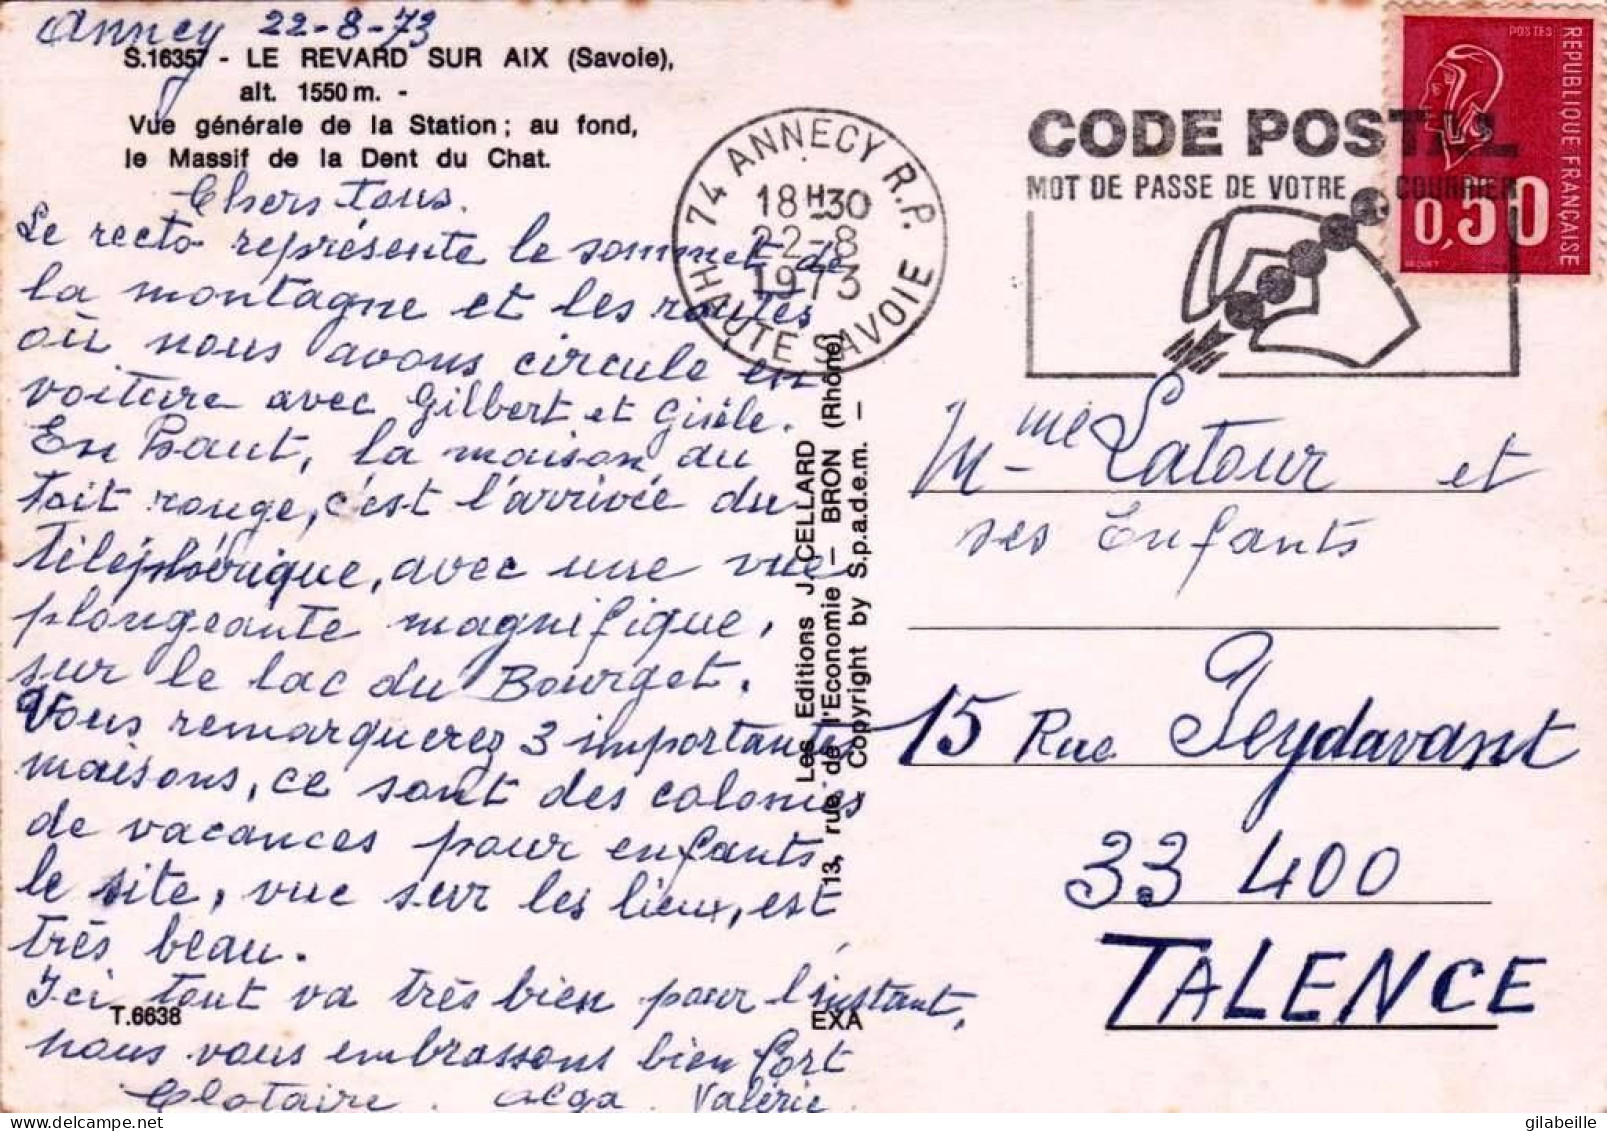 Annecy 22-8-73
S.16357 - LE REVARD SUR AIX (Savoie),
alt. 1550 m. -
Vue générale de la Station ; au fond,
le Massif de la Dent du Chat.
Chers tous.
Le recto représente le sommet de
la montagne et les routes
où nous avons circulé en
voiture avec Gilbert et Gisèle.
En haut, la maison du
toit rouge, c'est l'arrivée du
Téléphérique, avec une vue
plongeante magnifique,
sur le lac du Bourget.
Vous remarquerez 3 importantes
maisons, ce sont des colonies
de vacances pour enfants
le site, vue sur les lieux, est
très beau.
Ici tout va très bien pour l'instant,
nous vous embrassons bien fort
Clotaire. Olga. Valérie.
T.6638
EXA
Les Editions J. CELLARD
13, rue de l'Economie - BRON (Rhône)
Copyright by S.p.a.d.e.m. -
74 ANNECY R.P.
18H30
22-8
1973
HAUTE SAVOIE
CODE POSTAL
MOT DE PASSE DE VOTRE COURRIER
POSTES
REPUBLIQUE FRANÇAISE
0,50
Mme Latour et
ses Enfants
15 Rue Peydavant
33 400
TALENCE
gilabeille